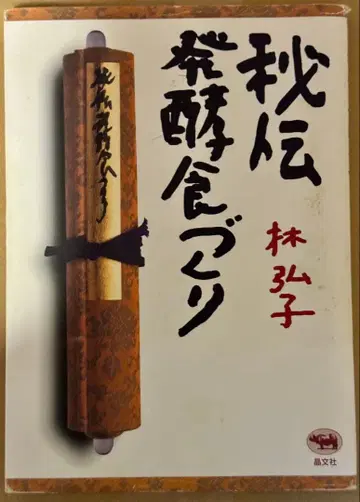 秘伝
発酵食づくり
林弘子
秘伝発酵食づくり
晶文社